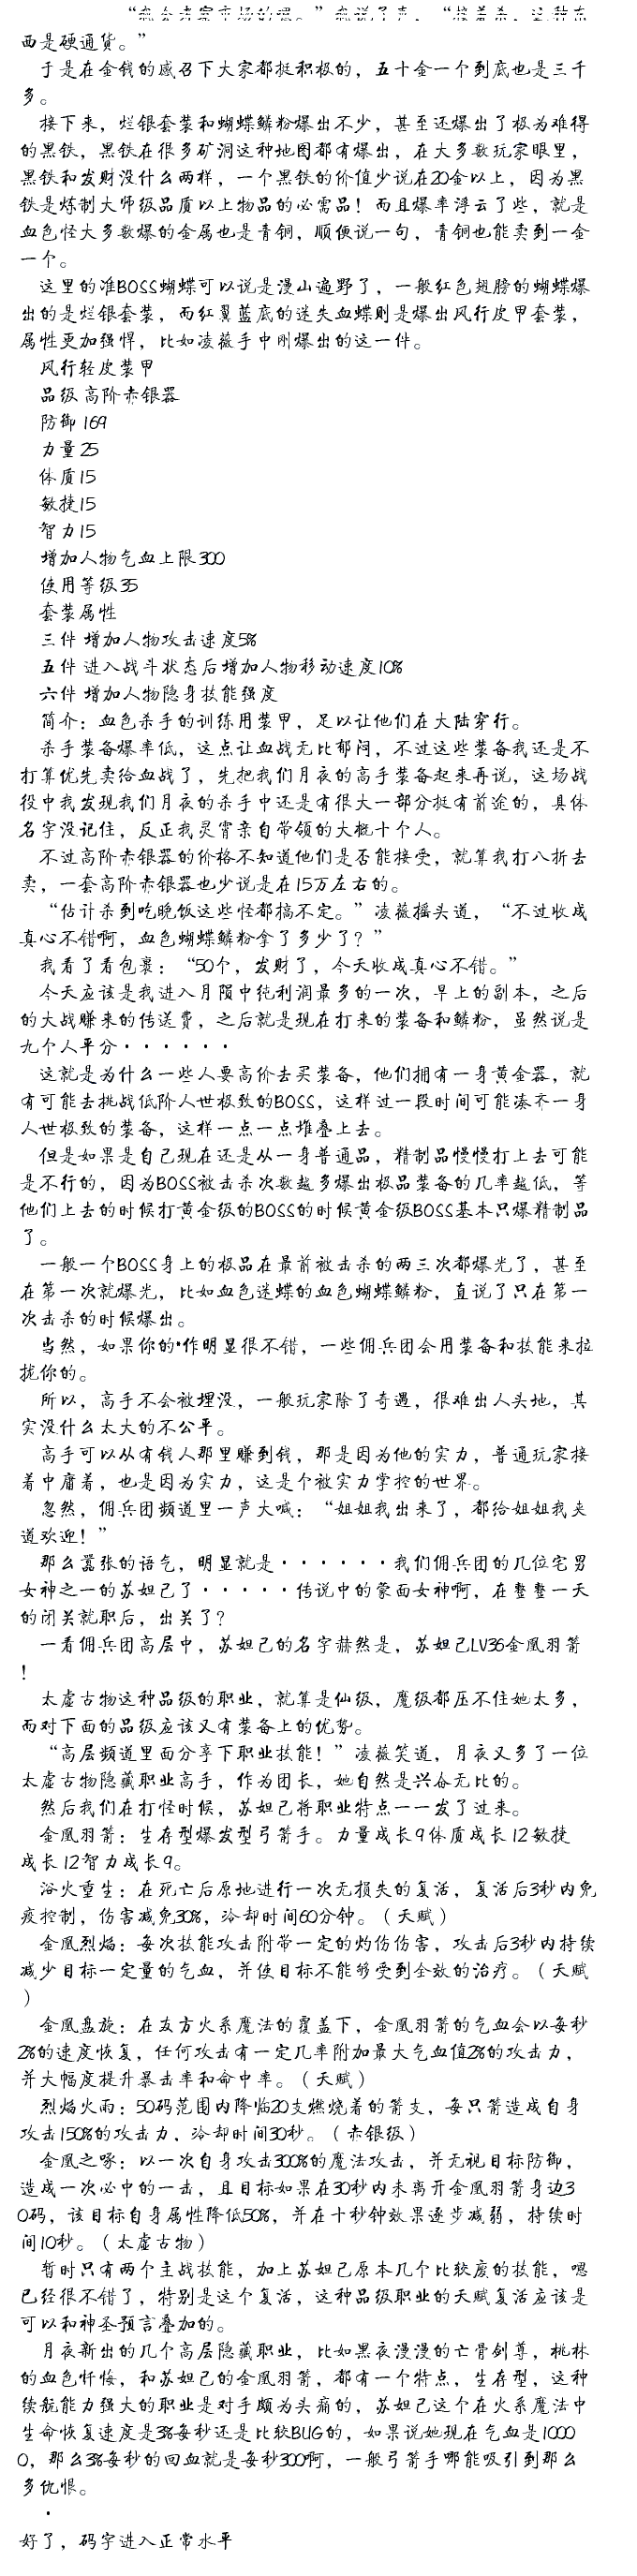 西是硬通貨。”
于是在金钱的感召下大家都挺积极的，五十金一个到底也是三千
多。
接下来，烂银套装和蝴蝶鳞粉爆出不少，甚至还爆出了极为难得
的黑铁，黑铁在很多矿洞这种地图都有爆出，在大多数玩家眼里，
黑铁和发财没什么两样，一个黑铁的价值少说在20金以上，因为黑
铁是炼制大师级品质以上物品的必需品！而且爆率浮云了些，就是
血色怪大多数爆的金属也是青铜，顺便说一句，青铜也能卖到一金
一个。
这里的准BOSS蝴蝶可以说是漫山遍野了，一般红色翅膀的蝴蝶爆
出的是烂银套装，而红翼蓝底的迷失血蝶则是爆出风行皮甲套装，
属性更加强悍，比如凌薇手中刚爆出的这一件。
风行轻皮装甲
品级 高阶赤银器
防御 169
力量 25
体质 15
敏捷 15
智力 15
增加人物气血上限 300
使用等级 35
套装属性
三件 增加人物攻击速度5%
五件 进入战斗状态后增加人物移动速度10%
六件 增加人物隐身技能强度
简介：血色杀手的训练用装甲，足以让他们在大陆穿行。
杀手装备爆率低，这点让血战无比郁闷，不过这些装备我还是不
打算优先卖给血战了，先把我们月夜的高手装备起来再说，这场战
役中我发现我们月夜的杀手中还是有很大一部分挺有前途的，具体
名字没记住，反正我灵霄亲自带领的大概十个人。
不过高阶赤银器的价格不知道他们是否能接受，就算我打八折去
卖，一套高阶赤银器也少说是在15万左右的。
“估计杀到吃晚饭这些怪都搞不定。”凌薇摇头道，“不过收成
真心不错啊，血色蝴蝶鳞粉拿了多少了？”
我看了看包裹：“50个，发财了，今天收成真心不错。”
今天应该是我进入月陨中纯利润最多的一次，早上的副本，之后
的大战赚来的传送费，之后就是现在打来的装备和鳞粉，虽然说是
九个人平分······
这就是为什么一些人要高价去买装备，他们拥有一身黄金器，就
有可能去挑战低阶人世极致的BOSS，这样过一段时间可能凑齐一身
人世极致的装备，这样一点一点堆叠上去。
但是如果是自己现在还是从一身普通品，精制品慢慢打上去可能
是不行的，因为BOSS被击杀次数越多爆出极品装备的几率越低，等
他们上去的时候打黄金级的BOSS的时候黄金级BOSS基本只爆精制品
了。
一般一个BOSS身上的极品在最前被击杀的两三次都爆光了，甚至
在第一次就爆光，比如血色迷蝶的血色蝴蝶鳞粉，直说了只在第一
次击杀的时候爆出。
当然，如果你的·作明显很不错，一些佣兵团会用装备和技能来拉
拢你的。
所以，高手不会被埋没，一般玩家除了奇遇，很难出人头地，其
实没什么太大的不公平。
高手可以从有钱人那里赚到钱，那是因为他的实力，普通玩家接
着中庸着，也是因为实力，这是个被实力掌控的世界。
忽然，佣兵团频道里一声大喊：“姐姐我出来了，都给姐姐我夹
道欢迎！”
那么嚣张的语气，明显就是······我们佣兵团的几位宅男
女神之一的苏妲己了·····传说中的蒙面女神啊，在整整一天
的闭关就职后，出关了？
一看佣兵团高层中，苏妲己的名字赫然是，苏妲己LV36金凰羽箭
！
太虚古物这种品级的职业，就算是仙级，魔级都压不住她太多，
而对下面的品级应该又有装备上的优势。
“高层频道里面分享下职业技能！”凌薇笑道，月夜又多了一位
太虚古物隐藏职业高手，作为团长，她自然是兴奋无比的。
然后我们在打怪时候，苏妲己将职业特点一一发了过来。
金凰羽箭：生存型爆发型弓箭手。力量成长9体质成长12敏捷
成长12智力成长9。
浴火重生：在死亡后原地进行一次无损失的复活，复活后3秒内免
疫控制，伤害减免30%，冷却时间60分钟。（天赋）
金凰烈焰：每次技能攻击附带一定的灼伤伤害，攻击后3秒内持续
减少目标一定量的气血，并使目标不能够受到全效的治疗。（天赋
）
金凰盘旋：在友方火系魔法的覆盖下，金凰羽箭的气血会以每秒
2%的速度恢复，任何攻击有一定几率附加最大气血值2%的攻击力，
并大幅度提升暴击率和命中率。（天赋）
烈焰火雨：50码范围内降临20支燃烧着的箭支，每只箭造成自身
攻击150%的攻击力，冷却时间30秒。（赤银级）
金凰之啄：以一次自身攻击300%的魔法攻击，并无视目标防御，
造成一次必中的一击，且目标如果在30秒内未离开金凰羽箭身边3
0码，该目标自身属性降低50%，并在十秒钟效果逐步减弱，持续时
间10秒。（太虚古物）
暂时只有两个主战技能，加上苏妲己原本几个比较废的技能，嗯
已经很不错了，特别是这个复活，这种品级职业的天赋复活应该是
可以和神圣预言叠加的。
月夜新出的几个高层隐藏职业，比如黑夜漫漫的亡骨剑尊，桃林
的血色忏悔，和苏妲己的金凰羽箭，都有一个特点，生存型，这种
续航能力强大的职业是对手颇为头痛的，苏妲己这个在火系魔法中
生命恢复速度是3%每秒还是比较BUG的，如果说她现在气血是1000
0，那么3%每秒的回血就是每秒300啊，一般弓箭手哪能吸引到那么
多仇恨。
·
好了，码字进入正常水平